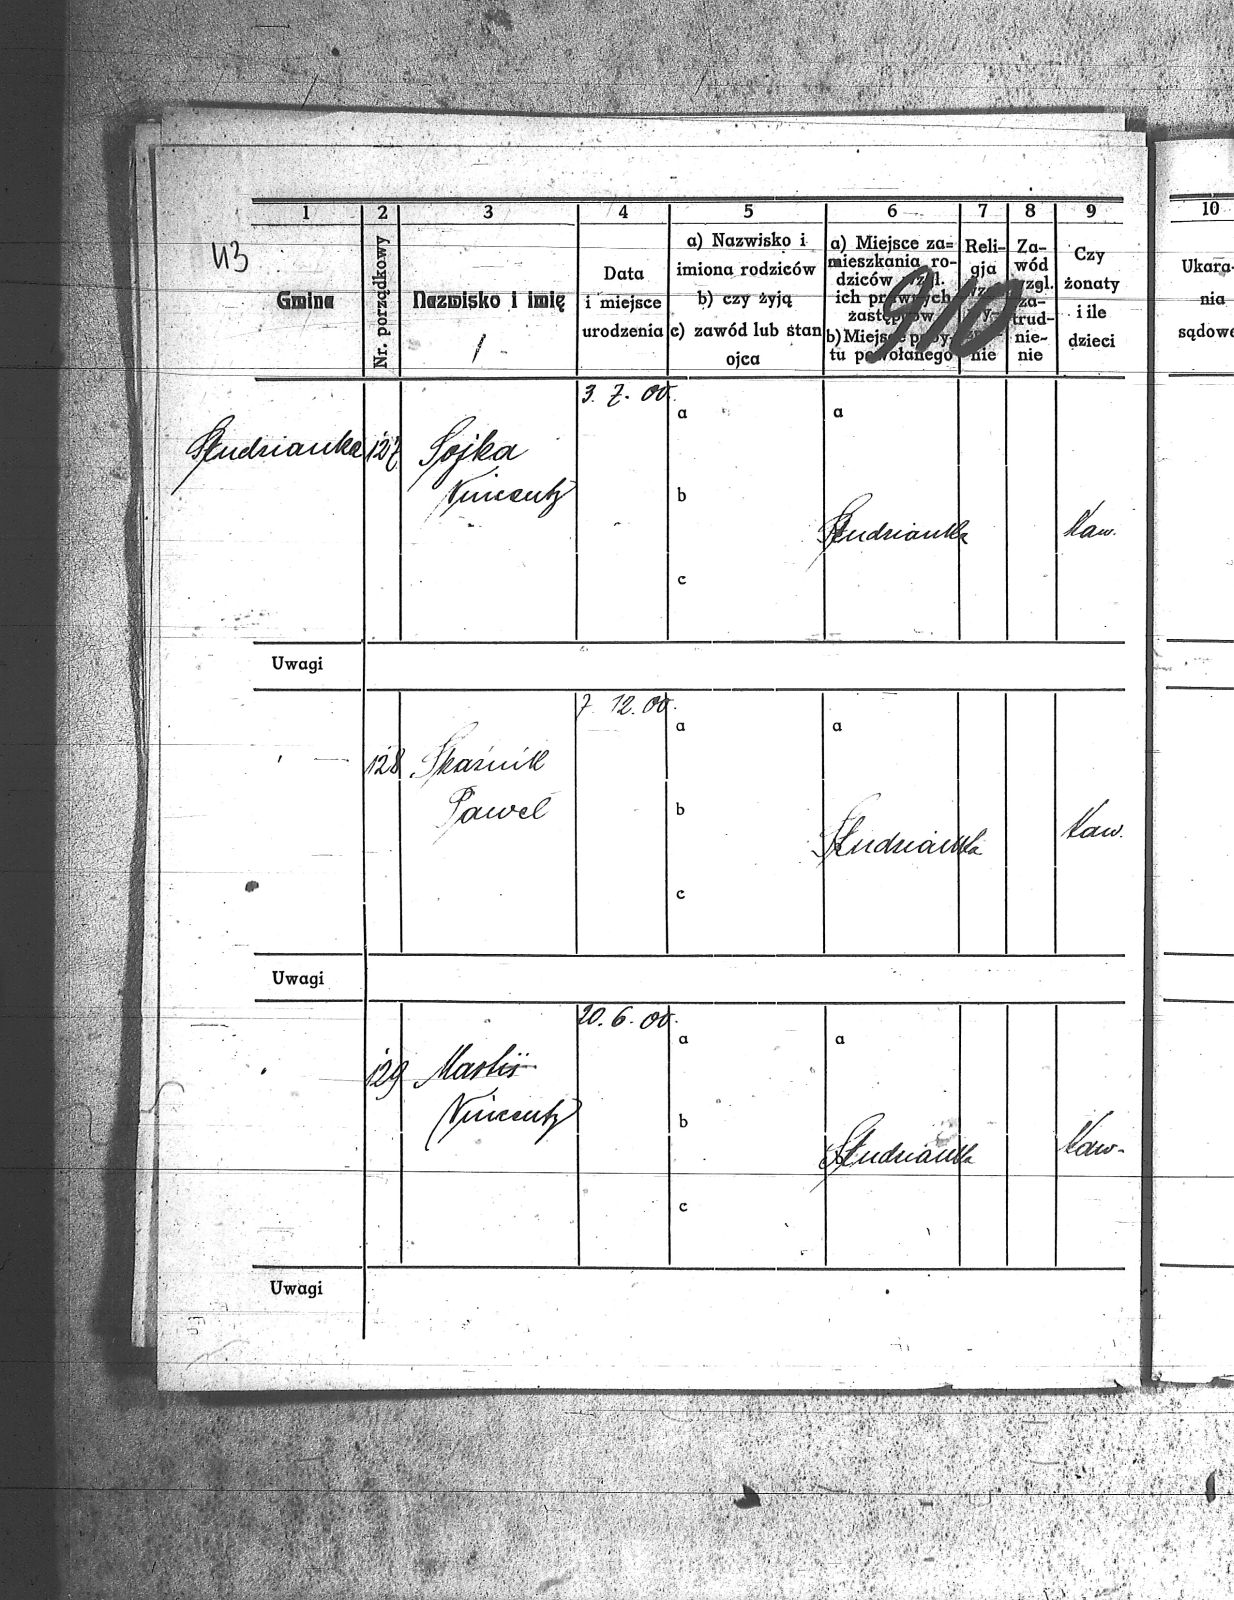 43
1 2 3 4 5 6 7 8 9 10
Gmina
Nr. porządkowy
Nazwisko i imię
/
Data
i miejsce
urodzenia
a) Nazwisko i
imiona rodziców
b) czy żyją
c) zawód lub stan
ojca
a) Miejsce za=
mieszkania ro-
dziców wzgl.
ich prawnych
zastępców
b) Miejsce poby-
tu powołanego
910
Reli-
gja
nie
Za-
wód
wzgl.
za-
trud-
nie-
nie
Czy
żonaty
i ile
dzieci
Ukara-
nia
sądowe
3. 7. 00.
a a
Studzianka 127 Sojka
Vincentz
b
Studzianka Kaw.
c
Uwagi
7. 12. 00.
a a
128 Skaźnik
Paweł
b
Studzianka Kaw.
c
Uwagi
20. 6. 00.
a a
129
Vincentz
b
Studzianka Kaw.
c
Uwagi